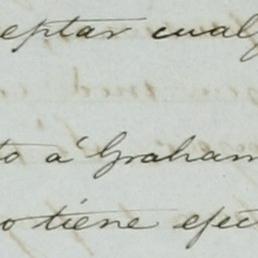 eptar cualq
to á Graham
o tiene efec